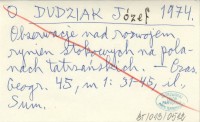 O DUDZIAK Józef 1974.
Obserwacje nad rozwojem
rynien stokowych na pola-
nach tatrzańskich. – Czas.
Geogr. 45, nr 1: 31-45, il.,
Sum.